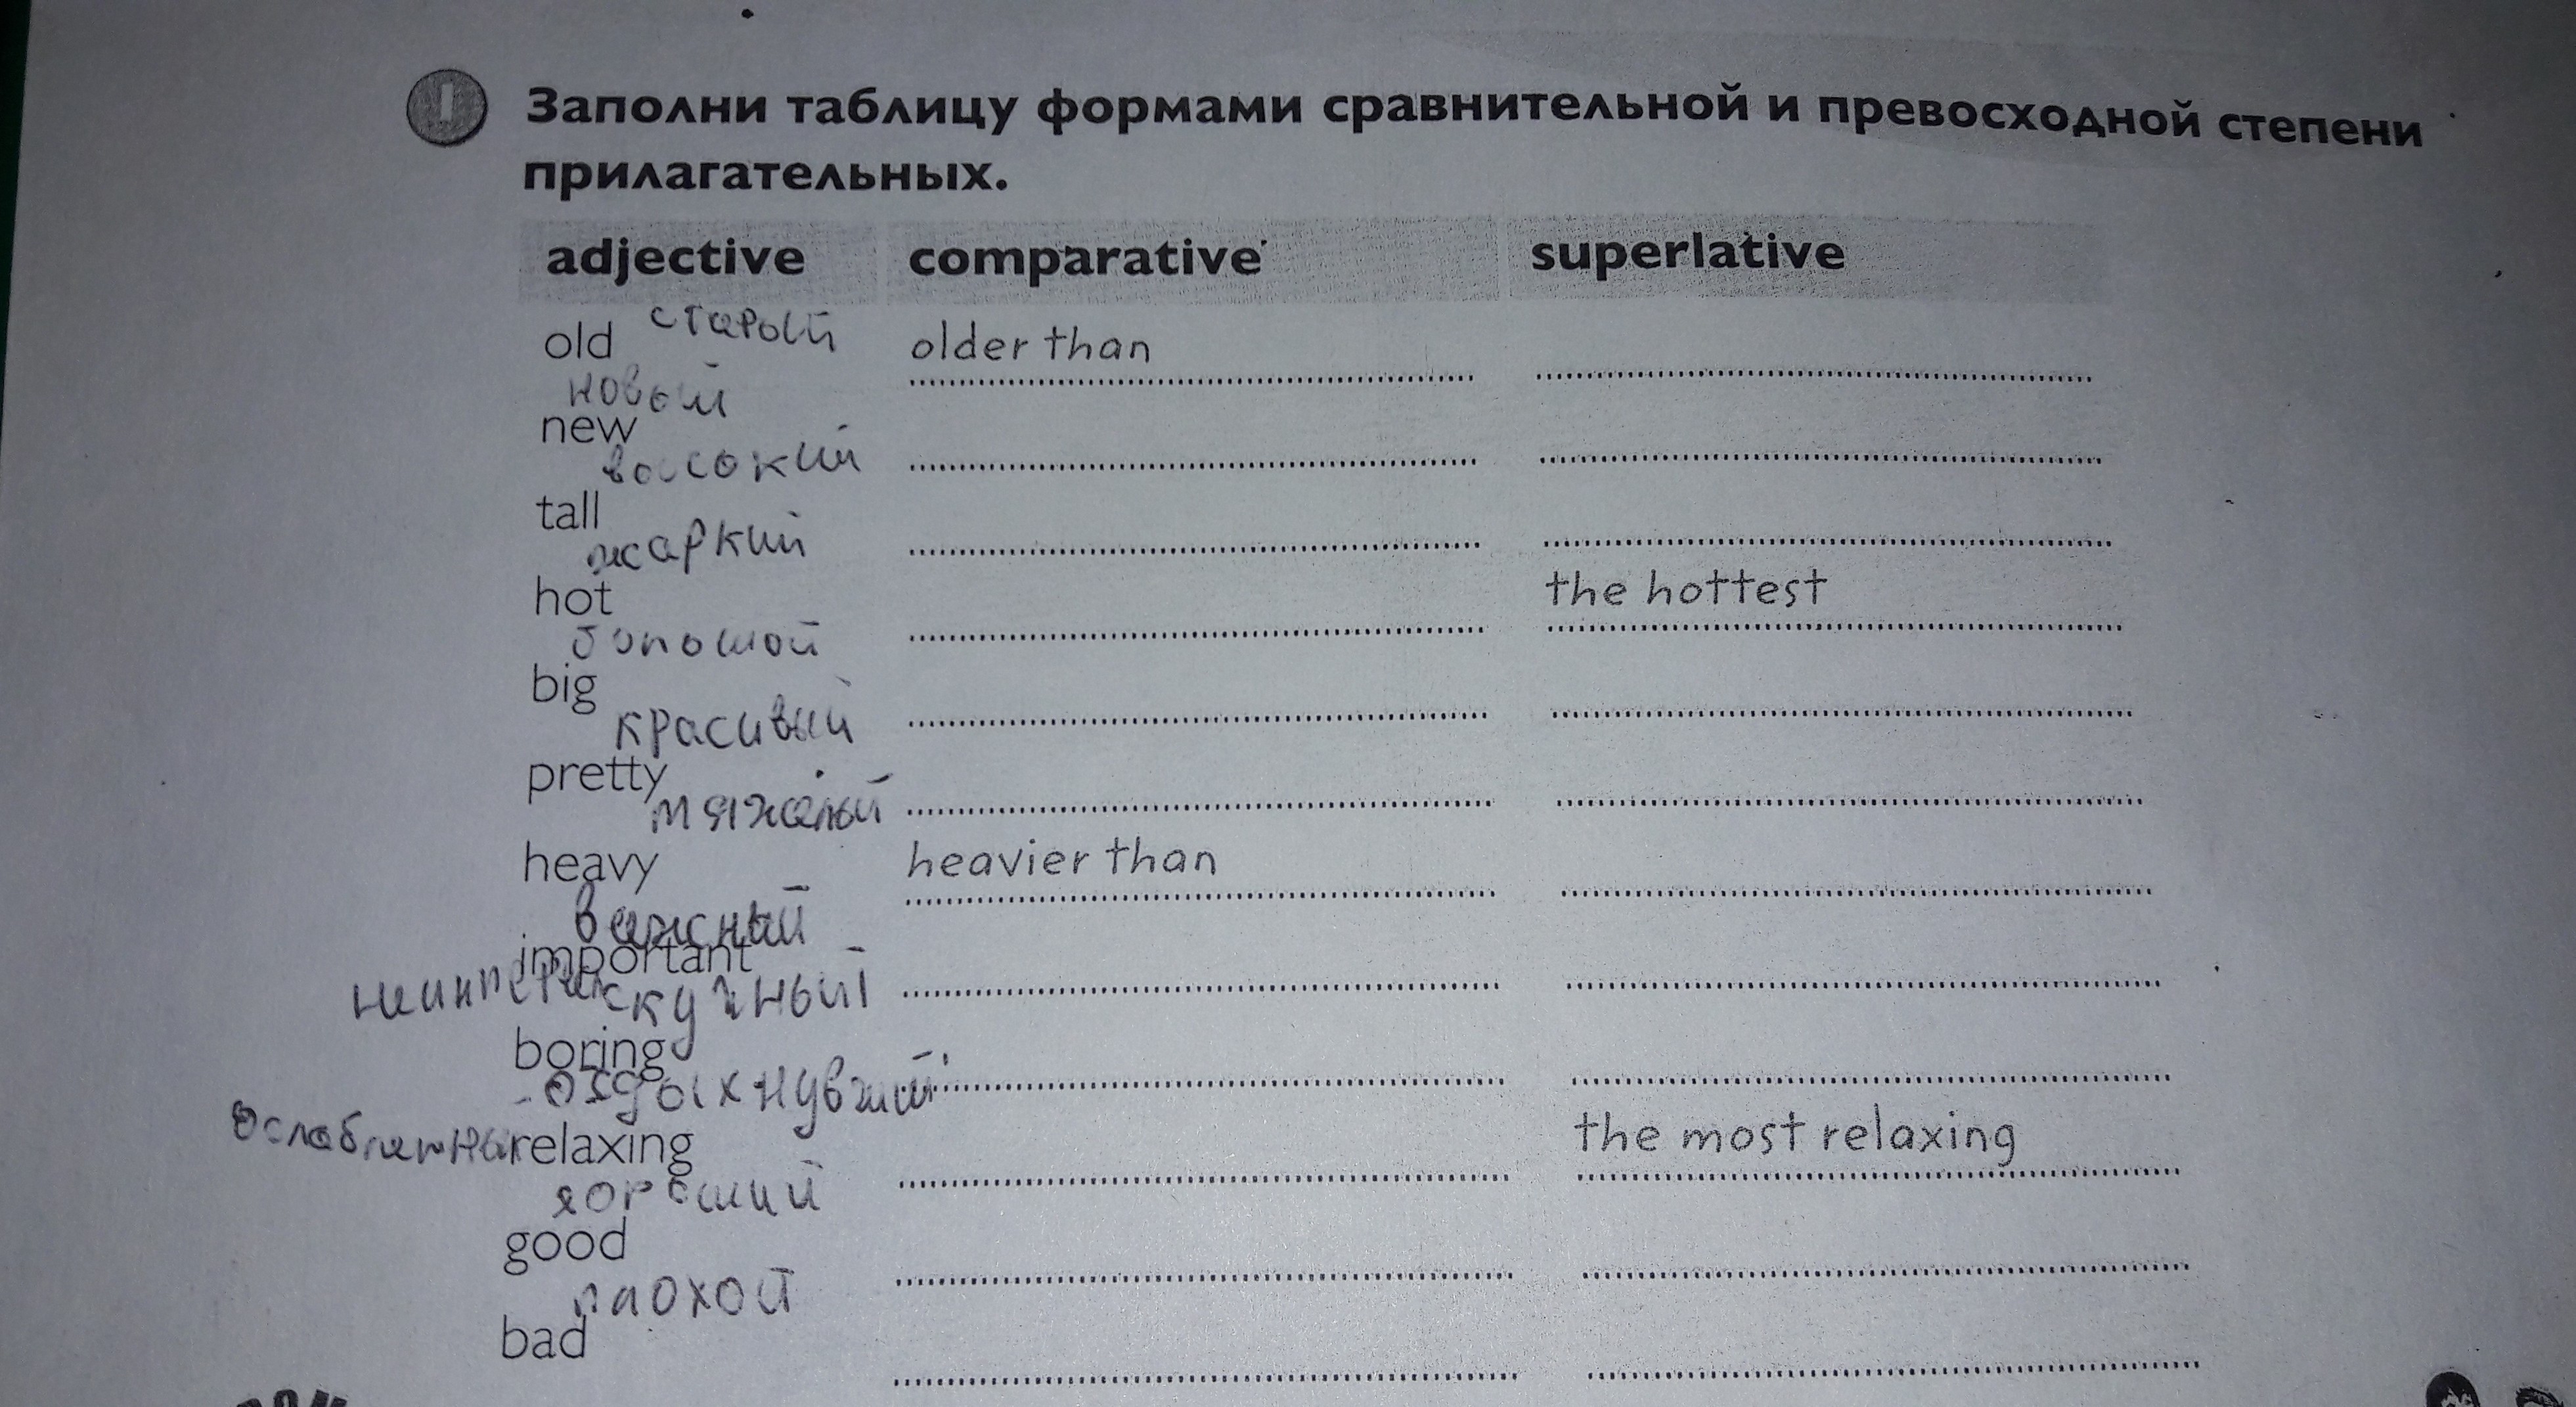 Заполни таблицу формами сравнительной и превосходной степени
прилагательных.
adjective comparative superlative
old старый older than
новый
new
высокий
tall
жаркий
hot the hottest
большой
big
красивый
pretty
тяжелый
heavy heavier than
важный
important
скучный
boring
relaxing the most relaxing
хороший
good
плохой
bad